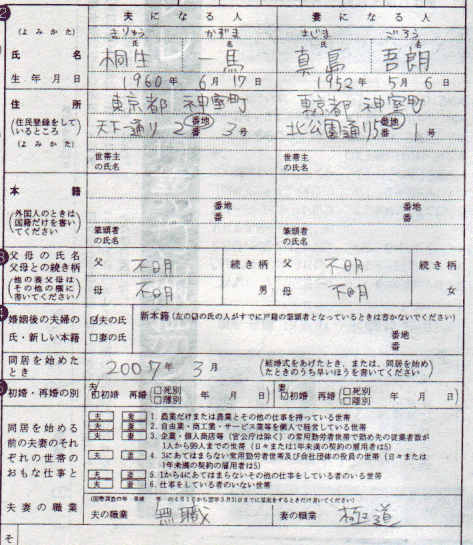 夫になる人 妻になる人
(よみかた) きりゅう かずま まじま ごろう
氏 名 氏 名
氏名 桐生 一馬 真島 吾朗
生年月日 1960年 6月 17日 1952年 5月 6日
住所 東京都 神室町 東京都 神室町
(住民登録をしているところ) 天下一通り 2 番地 番 3号 北公園通り5 番地 番 1号
(よみかた)
世帯主の氏名 世帯主の氏名
本籍
番地 番 番地 番
(外国人のときは国籍だけを書いてください)
筆頭者の氏名 筆頭者の氏名
父母の氏名 父 不明 続き柄 父 不明 続き柄
父母との続き柄
(他の養父母はその他の欄に書いてください) 母 不明 男 母 不明 女
婚姻後の夫婦の氏・新しい本籍 ☑夫の氏 新本籍(左の☑の氏の人がすでに戸籍の筆頭者となっているときは書かないでください)
□妻の氏 番地 番
同居を始めたとき 2007年 3月 (結婚式をあげたとき、または、同居を始めたときのうち早いほうを書いてください)
初婚・再婚の別 夫 ☑初婚 再婚 (□死別 □離別 年 月 日) 妻 ☑初婚 再婚 (□死別 □離別 年 月 日)
同居を始める前の夫妻のそれぞれの世帯のおもな仕事と
夫 妻 1. 農業だけまたは農業とその他の仕事を持っている世帯
夫 妻 2. 自由業・商工業・サービス業等を個人で経営している世帯
夫 妻 3. 企業・個人商店等(官公庁は除く)の常用勤労者世帯で勤め先の従業者数が
1人から99人までの世帯(日々または1年未満の契約の雇用者は5)
夫 妻 4. 3にあてはまらない常用勤労者世帯及び会社団体の役員の世帯(日々または
1年未満の契約の雇用者は5)
夫 妻 5. 1から4にあてはまらないその他の仕事をしている者のいる世帯
夫 妻 6. 仕事をしている者のいない世帯
夫妻の職業
夫の職業 無職 妻の職業 極道
そ